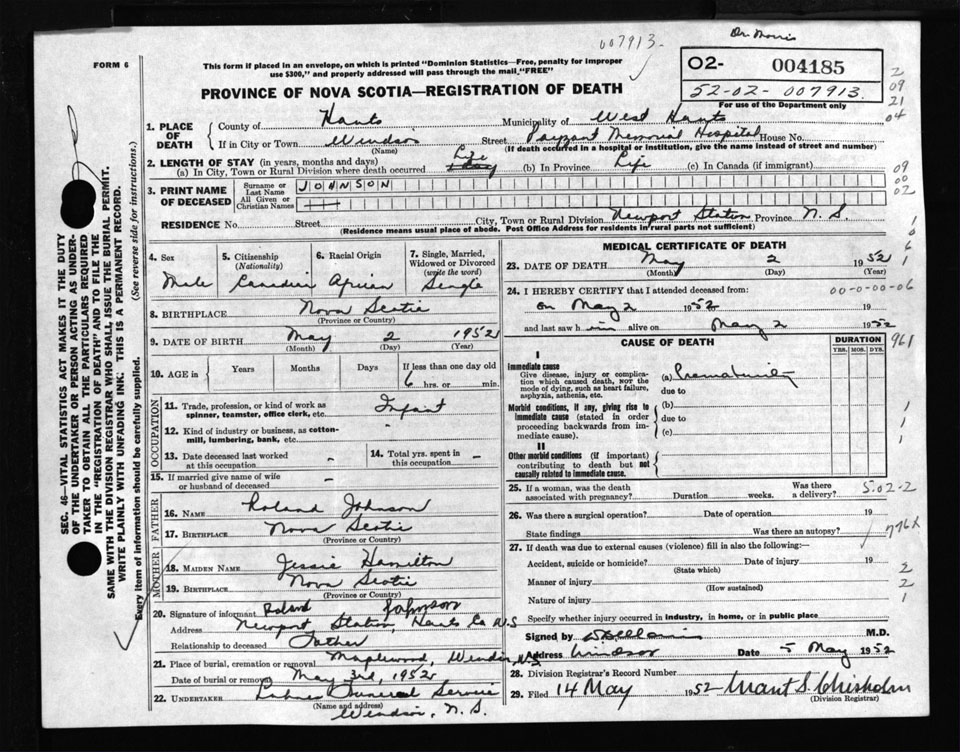 Dr. Morris
007913.
FORM 6
This form if placed in an envelope, on which is printed "Dominion Statistics—Free, penalty for improper
use $300," and properly addressed will pass through the mail, "FREE"
PROVINCE OF NOVA SCOTIA—REGISTRATION OF DEATH
O2- 004185
52-02-007913.
For use of the Department only
2
09
21
04
1. PLACE OF DEATH { County of Hants Municipality of West Hants
If in City or Town Windsor Street Payzant Memorial Hospital House No.
(Name) (If death occurred in a hospital or institution, give the name instead of street and number)
2. LENGTH OF STAY (in years, months and days)
(a) In City, Town or Rural Division where death occurred Life (b) In Province Life (c) In Canada (if immigrant)
09
00
02
3. PRINT NAME OF DECEASED { Surname or Last Name JOHNSON
All Given or Christian Names
RESIDENCE No. Street City, Town or Rural Division Newport Station Province N. S.
(Residence means usual place of abode. Post Office Address for residents in rural parts not sufficient)
SEC. 46—VITAL STATISTICS ACT MAKES IT THE DUTY
OF THE UNDERTAKER OR PERSON ACTING AS UNDER-
TAKER TO OBTAIN ALL THE PARTICULARS REQUIRED
IN THE "REGISTRATION OF DEATH" AND TO FILE THE
SAME WITH THE DIVISION REGISTRAR WHO SHALL ISSUE THE BURIAL PERMIT.
WRITE PLAINLY WITH UNFADING INK: THIS IS A PERMANENT RECORD.
Every item of information should be carefully supplied. (See reverse side for instructions.)
4. Sex 5. Citizenship (Nationality) 6. Racial Origin 7. Single, Married, Widowed or Divorced (write the word)
Male Canadian African Single
8. BIRTHPLACE Nova Scotia
(Province or Country)
9. DATE OF BIRTH May 2 1952
(Month) (Day) (Year)
10. AGE in { Years Months Days If less than one day old
6 hrs. or min.
OCCUPATION
11. Trade, profession, or kind of work as
spinner, teamster, office clerk, etc. Infant
12. Kind of industry or business, as cotton-
mill, lumbering, bank, etc.
13. Date deceased last worked
at this occupation -
14. Total yrs. spent in
this occupation -
15. If married give name of wife
or husband of deceased -
FATHER
16. NAME Roland Johnson
17. BIRTHPLACE Nova Scotia
(Province or Country)
MOTHER
18. MAIDEN NAME Jessie Hamilton
19. BIRTHPLACE Nova Scotia
(Province or Country)
20. Signature of informant Roland Johnson
Address Newport Station, Hants Co N.S
Relationship to deceased Father
21. Place of burial, cremation or removal Maplewood, Windsor, N.S
Date of burial or removal May 3rd, 1952
22. UNDERTAKER Funeral Service
(Name and address)
Windsor, N. S.
MEDICAL CERTIFICATE OF DEATH
23. DATE OF DEATH May 2 1952
(Month) (Day) (Year)
24. I HEREBY CERTIFY that I attended deceased from: 00-0-00-06
on May 2 1952 19
and last saw him alive on May 2 1952
CAUSE OF DEATH
DURATION
YRS. MOS. DYS.
961
I
Immediate cause
Give disease, injury or complica-
tion which caused death, NOT the
mode of dying, such as heart failure,
asphyxia, asthenia, etc.
(a) Prematurity
due to
Morbid conditions, if any, giving rise to
immediate cause (stated in order
proceeding backwards from im-
mediate cause).
(b)
due to
(c)
II
Other morbid conditions (if important)
contributing to death but not
causally related to immediate cause.
25. If a woman, was the death
associated with pregnancy? Duration weeks. Was there
a delivery? 5.02-2
26. Was there a surgical operation? Date of operation 19
State findings Was there an autopsy? 776X
27. If death was due to external causes (violence) fill in also the following:—
Accident, suicide or homicide? Date of injury 19
(State which)
Manner of injury
(How sustained)
Nature of injury
2
2
1
Specify whether injury occurred in industry, in home, or in public place
Signed by M.D.
Address Windsor Date 5 May 1952
28. Division Registrar's Record Number
29. Filed 14 May 1952 Grant S. Chisholm
(Division Registrar)